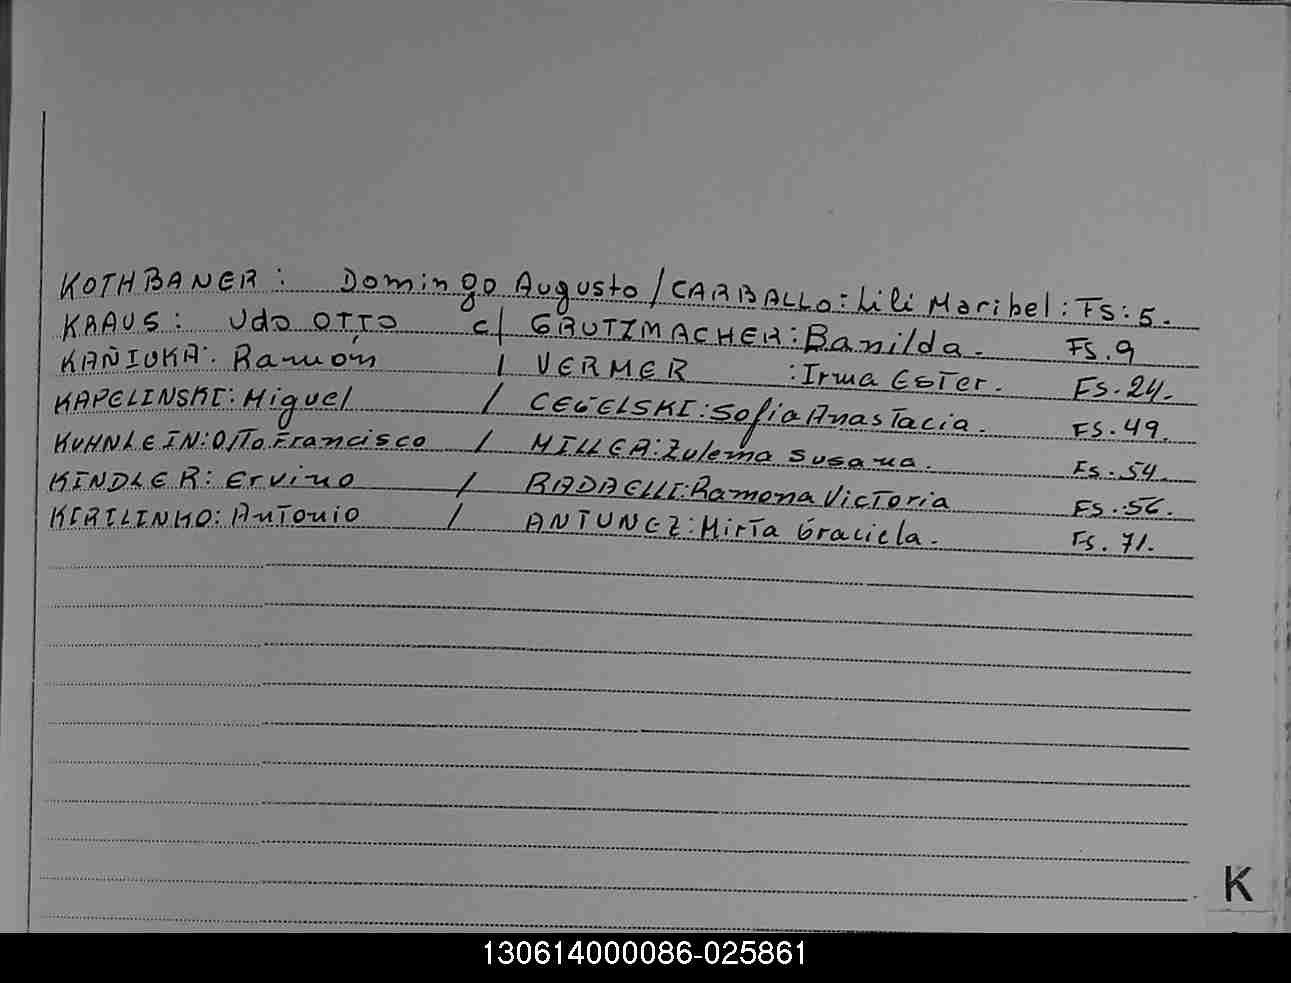 KOTHBANER: Domingo Augusto / CARBALLO: Lili Maribel: Fs: 5.
KRAUS: Udo OTTO c/ GRUTZMACHER: Banilda. Fs. 9
KAÑIUKA: Ramón / VERMER : Irma Ester. Fs. 24.
KAPELINSKI: Miguel / CEGELSKI: Sofia Anastacia. Fs. 49.
KUHNLEIN: Otto Francisco / MILLER: Zulema Susana. Fs. 54.
KINDLER: Ervino / RADAELLI: Ramona Victoria Fs. 56.
KIRILINKO: Antonio / ANTUNEZ: Mirta Graciela. Fs. 71.
K
130614000086-025861